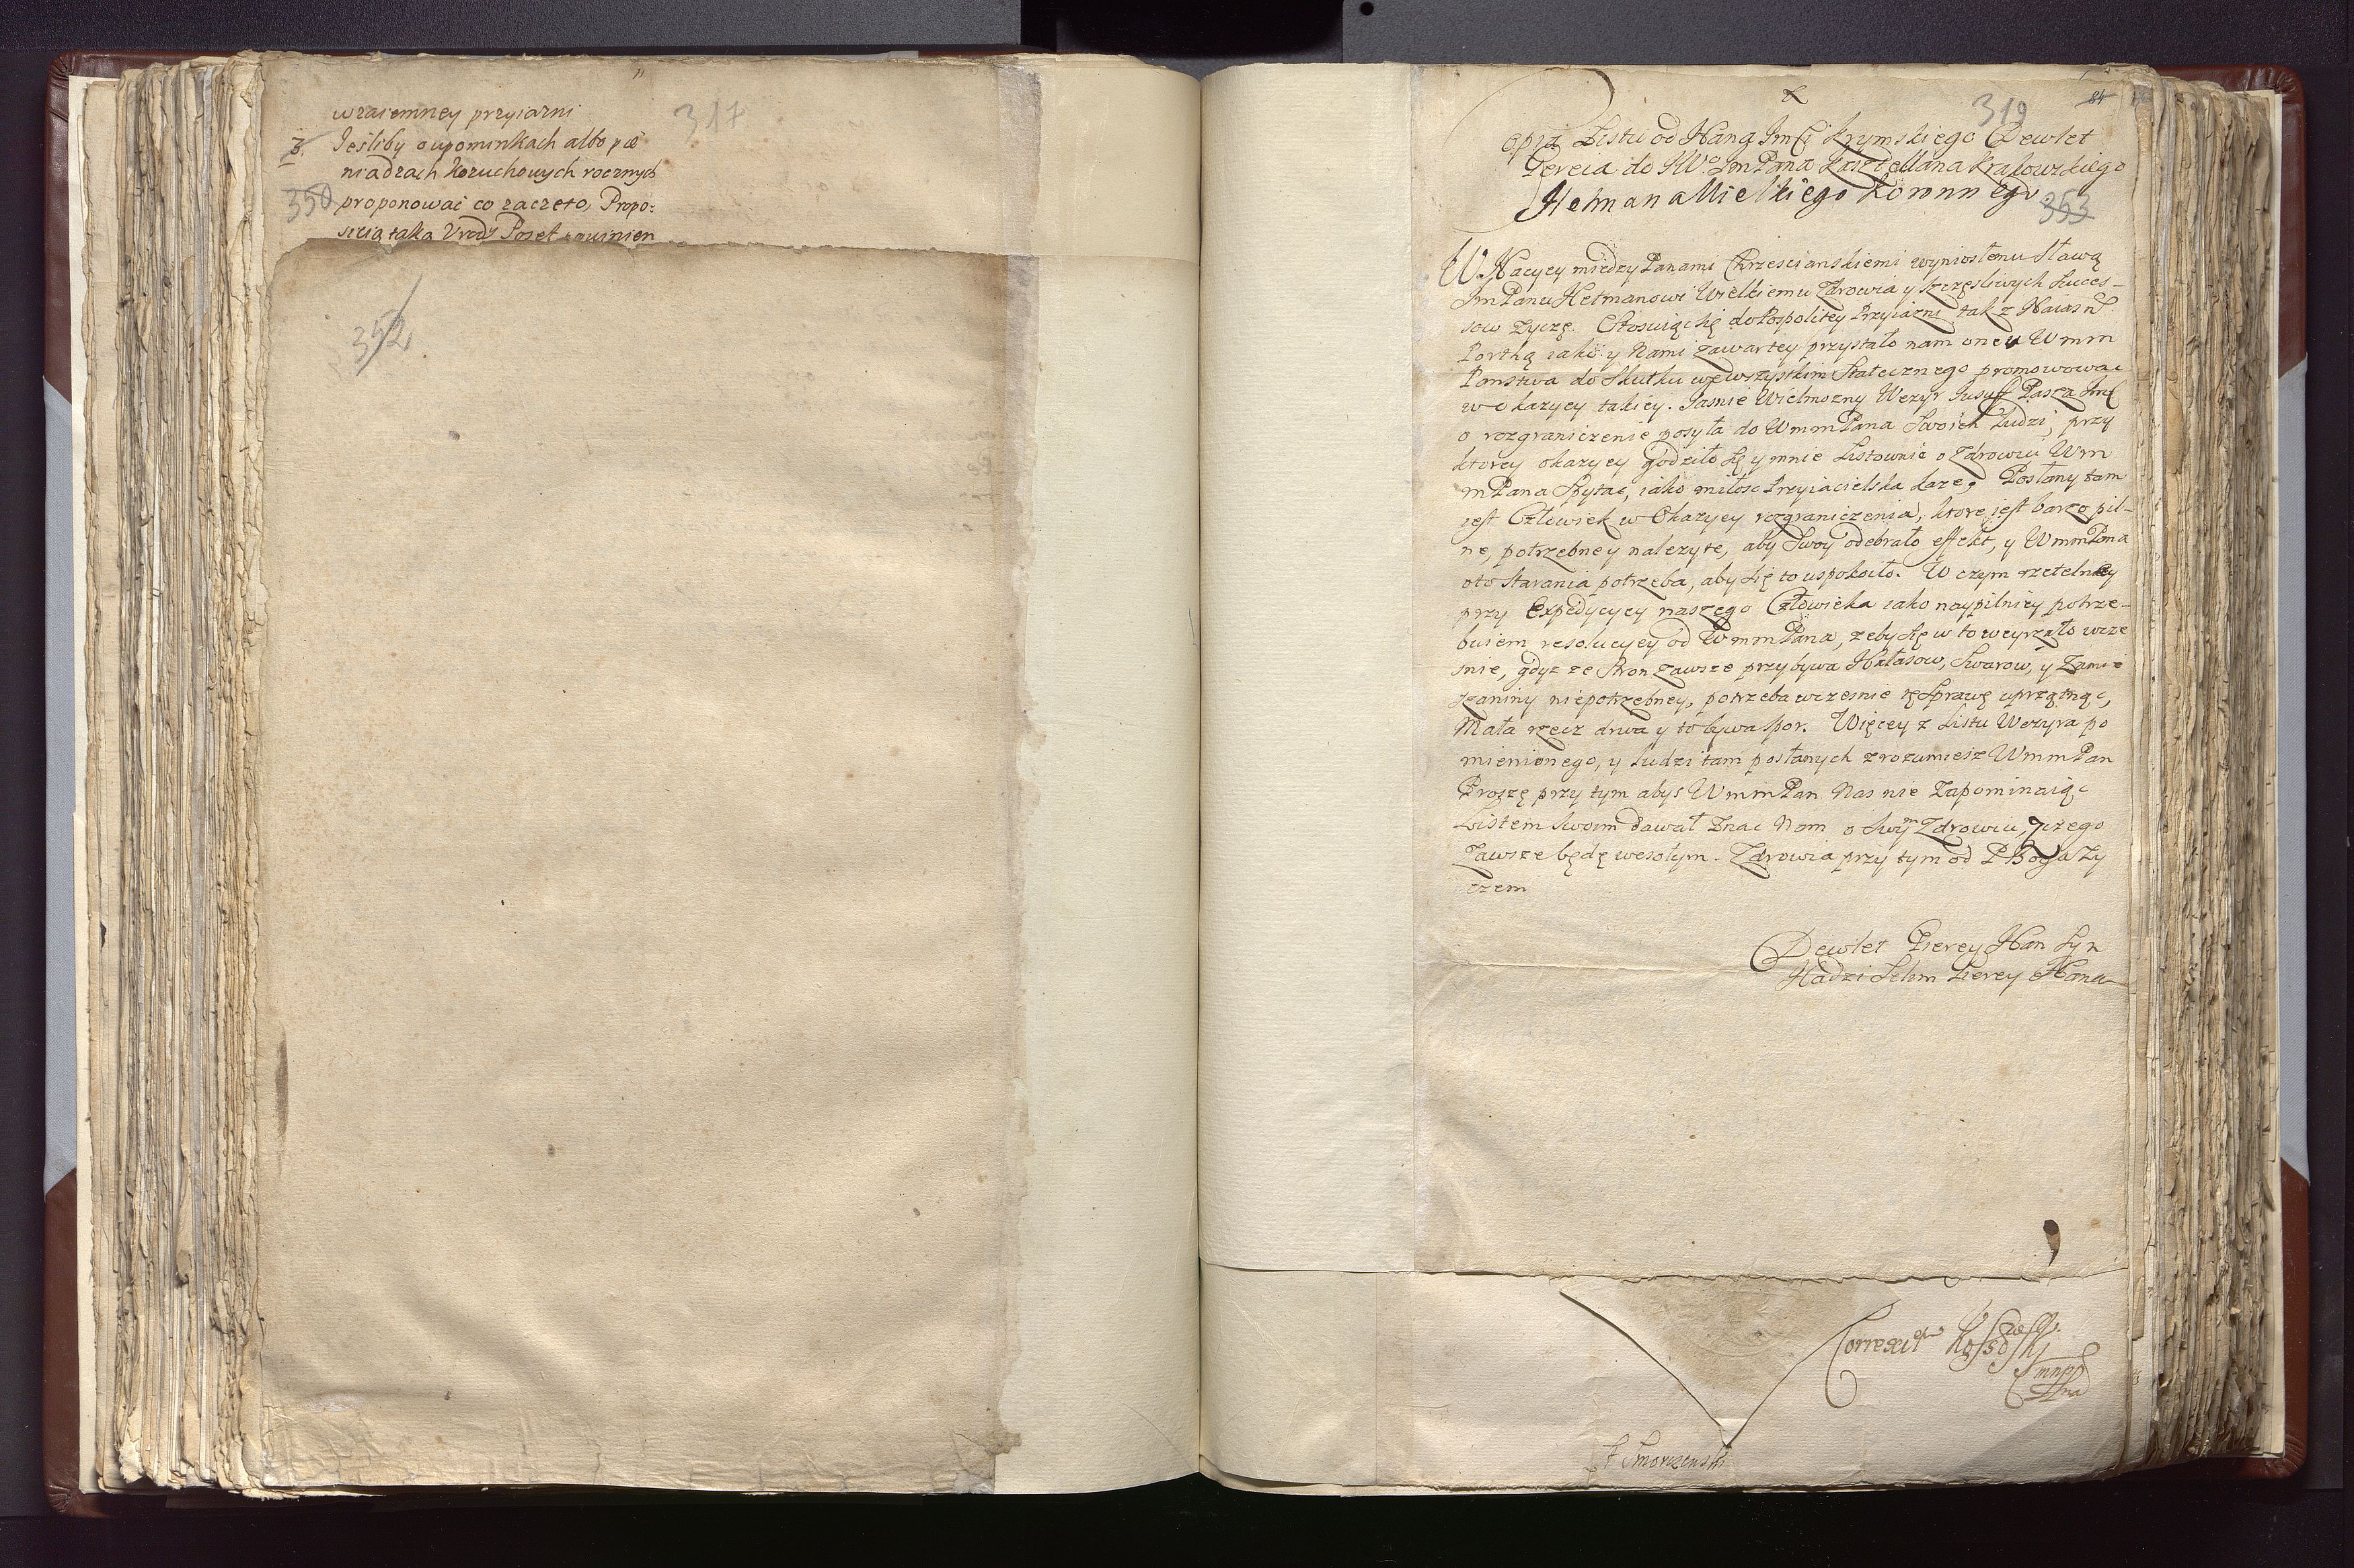 317
wzaiemney przyiazni
3. Jesliby o upominkach albo pie
niadzach kozuchowych rocznych
350 proponować co zaczeto, Propo:
sicią taką Urody Poseł powinien
352
84
319
Copia Listu od Hana JmCi Krymskiego Dewlet
Gereia do JWo JmPana Kasztellana Krakowskiego
Hetmana Wielkiego Koronnego
353
W Nacyey między Panami Chrzescianskiemi wyniosłemu Sławą
JmPanu Hetmanowi Wielkiemu Zdrowia y szczęsliwych Succes-
sow zyczę. Stosuiąc się do Pospolitey Przyiazni tak z Naiasn
Porthą iako y Nami zawartey przystało nam oney Wmm
Panstwa do Skutku we wszystkim Statecznego promowowac
w okazyey takiey. Jasnie Wielmozny Wezyr Jusuff Pasza Jmć
o rozgraniczenie posyła do WmmPana Swoich Ludzi, przy
ktorey okazyey godziło się y mnie Listownie o Zdrowiu Wm
mPana Spytac, iako miłosc Przyiacielska każe, Posłany tam
iest Człowiek w Okazyey rozgraniczenia, ktore iest barzo pil-
ne, potrzebney nalezyte, aby Swoy odebrało effekt, y WmmPana
oto starania potrzeba, aby się to uspokoiło. W czym rzetelney
przy Expedycyey naszego Człowieka iako naypilniey potrze-
buiem resolucyey od WmmPana, zeby się w to weyrzało wcze
snie, gdyz ze stron zawsze przybywa Hałasow, Swarow, y Zamie
szaniny niepotrzebney, potrzeba wczesnie tę Sprawę uprzątnąc,
Mała rzecz drwa y to bywa spor. Więcey z Listu Wezyra po
mienionego, y Ludzi tam posłanych zrozumiesz WmmPan
Proszę przy tym abys WmmPan Nas nie Zapominaiąc
Listem Swoim dawał Znac Nam o Swym Zdrowiu, z czego
Zawsze będę wesołym. Zdrowia przy tym od P Boga Zy
czem
Dewlet Gierey Han Syn
Hadzi Selim Gierey Hana
Correxit
Smorczewski